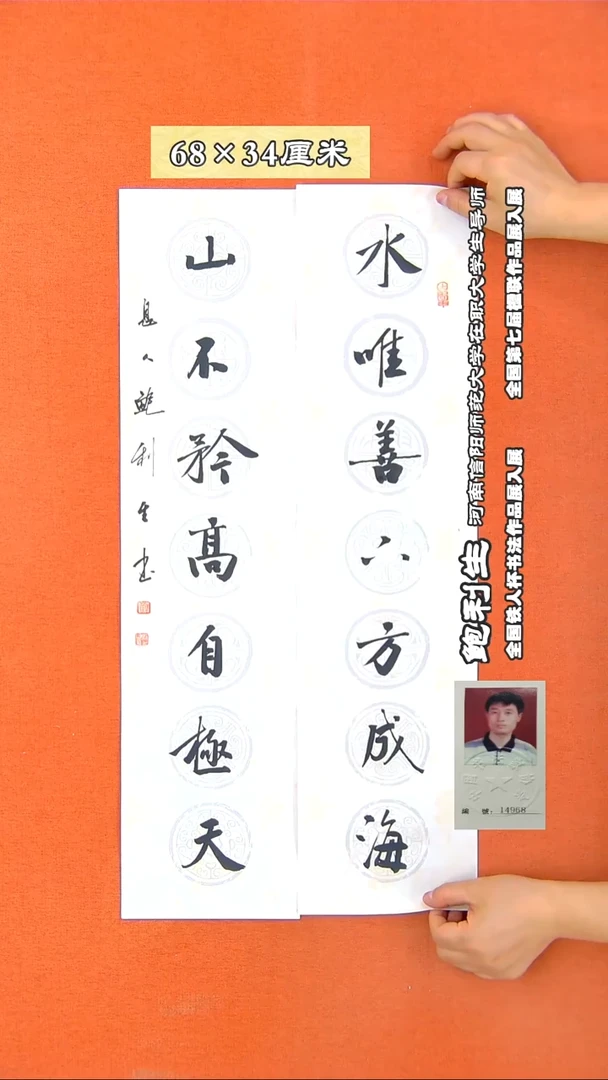 68×34厘米
水唯善下方成海
山不矜高自極天
息人鲍利生书
鲍利生 河南信阳师范大学在职大学生导师
全国铁人杯书法作品展入展 全国第七届楹联作品展入展
编 號：14968